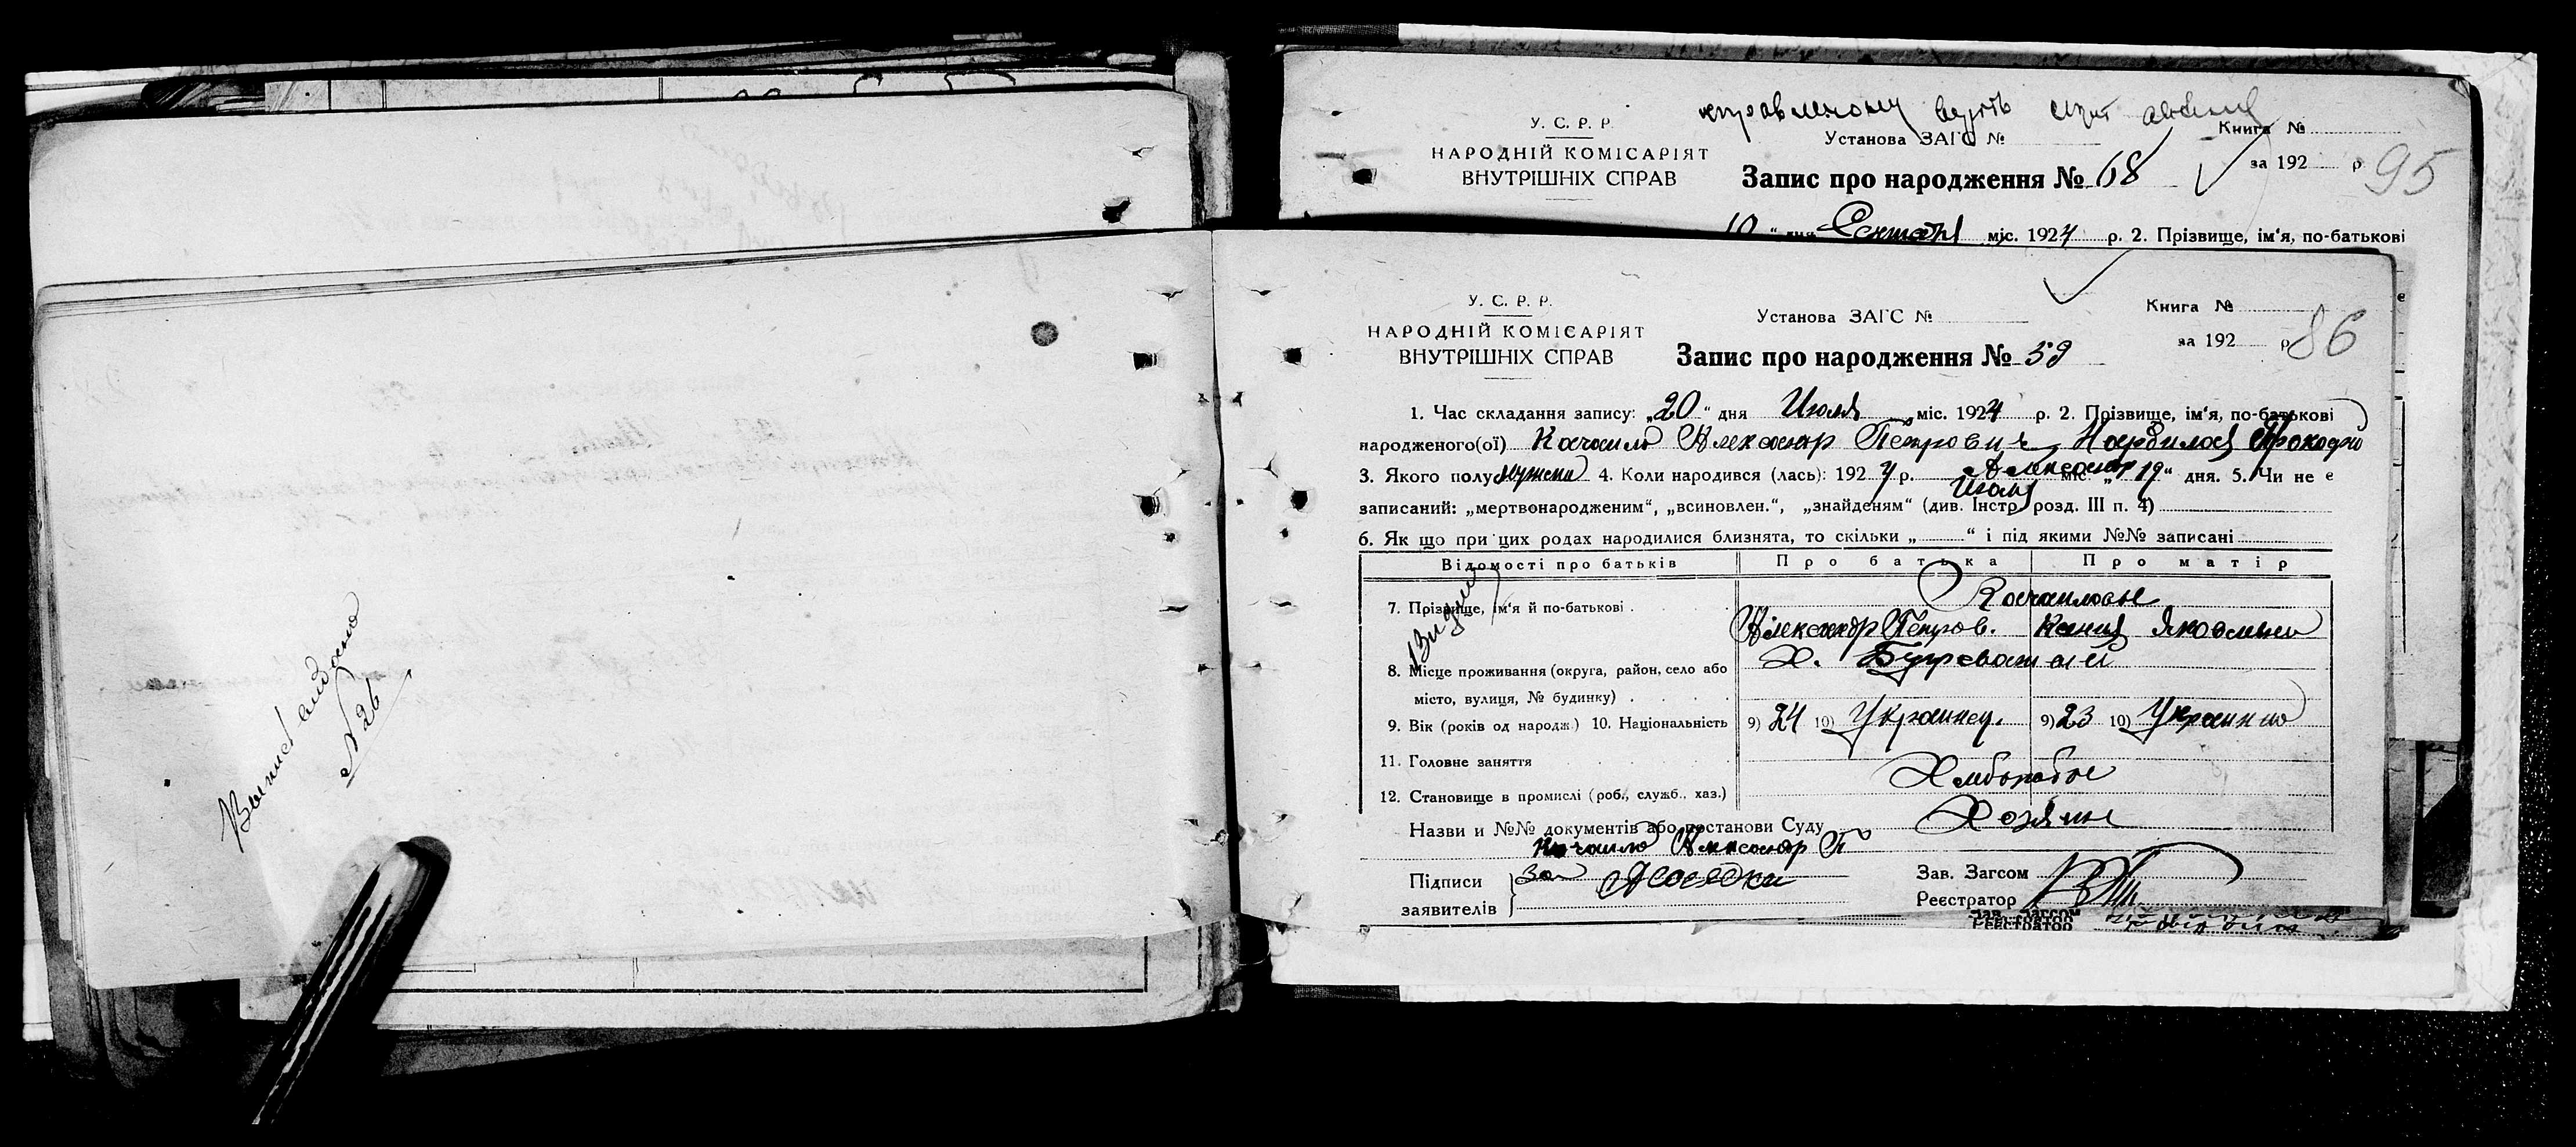 Выпись выдано
№ 26
У. С. Р. Р.
НАРОДНІЙ КОМІСАРІЯТ
ВНУТРІШНІХ СПРАВ
Установа ЗАГС №
Книга №
за 192 р
95
Запис про народження № 68
10 " дня міс. 1924 р. 2. Прізвище, ім'я, по-батькові
У. С. Р. Р.
НАРОДНІЙ КОМІСАРІЯТ
ВНУТРІШНІХ СПРАВ
Установа ЗАГС №
Книга №
за 192 р
86
Запис про народження № 59
1. Час складання запису: „20" дня Июля міс. 1924 р. 2. Прізвище, ім'я, по-батькові
народженого(ої) Качаило Александр Петрович
Александр
3. Якого полу мужски 4. Коли народився (лась): 1924 р. Июля міс. „19" дня. 5. Чи не є
записаний: „мертвонародженим", „всиновлен.", „знайденям" (див. Інстр. розд. III п. 4)
6. Як що при цих родах народилися близнята, то скільки „ " і під якими №№ записані
Відомості про батьків Про батька Про матір
7. Прізвище, ім'я й по-батькові Качаиловы
Александр Петров. Ксения Яковлевна
8. Місце проживання (округа, район, село або Х.
місто, вулиця, № будинку)
9. Вік (років од народж.) 10. Національність 9) 24 10) Украинец. 9) 23 10) Украинка
11. Головне заняття Хлиборобы
12. Становище в промислі (роб., служб., хаз.)
Назви и №№ документів або постанови Суду Хозяин
Качаило Александр П
Підписи за
заявителів
Зав. Загсом
Реєстратор
Зав. Загсом
Реєстратор